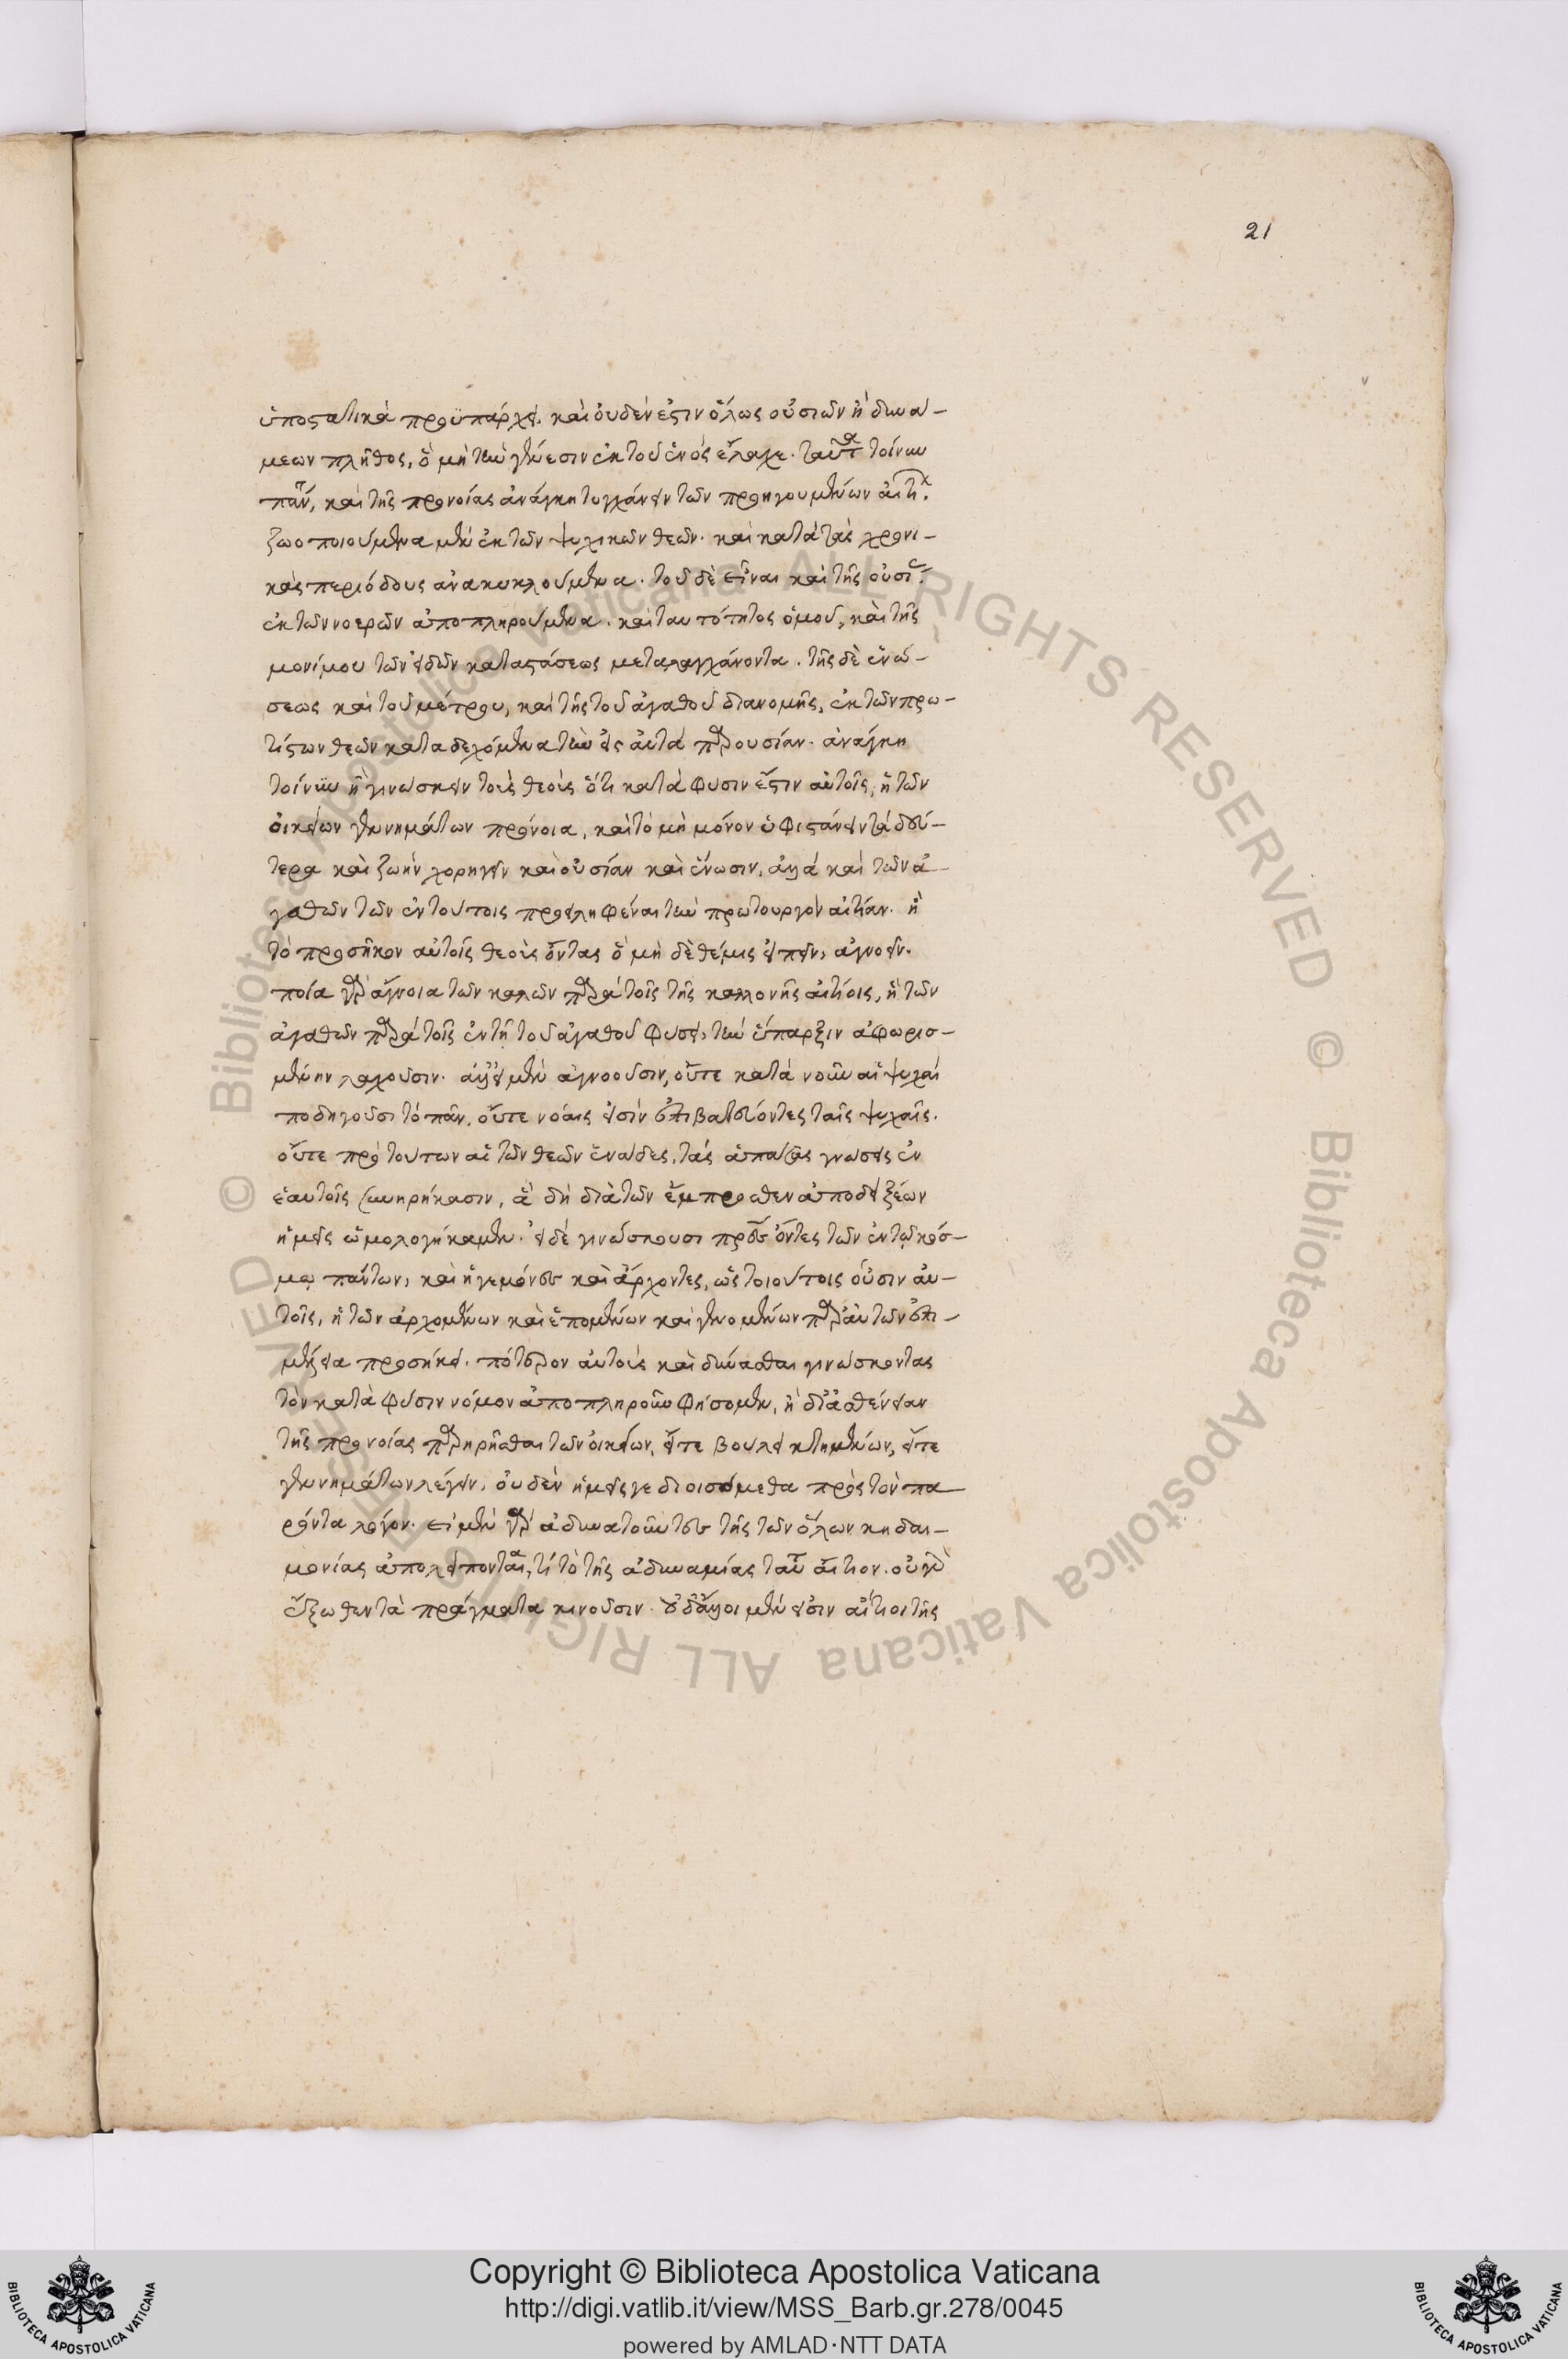 21
ὑποστατικὰ προϋπάρχει. καὶ οὐδέν ἐστιν ὅλως οὐσιῶν ἢ δυνά-
μεων πλῆθος, ὃ μὴ τὴν γένεσιν ἐκ τοῦ ἑνὸς ἔλαχε. ταῦτα τοίνυν
πάντα, καὶ τῆς προνοίας ἀνάγκη τυγχάνειν τῶν προηγουμένων αἰτι.
ζωοποιούμενα μὲν ἐκ τῶν ψυχικῶν θεῶν. καὶ κατὰ τὰς χρονι-
κὰς περιόδους ἀνακυκλούμενα. τοῦ δὲ εἶναι καὶ τῆς οὐσίας
ἐκ τῶν νοερῶν ἀποπληρούμενα. καὶ ταυτότητος ὁμοῦ, καὶ τῆς
μονίμου τῶν εἰδῶν καταστάσεως μεταλαγχάνοντα. τῆς δὲ ἑνώ-
σεως καὶ τοῦ μέτρου, καὶ τῆς τοῦ ἀγαθοῦ διανομῆς, ἐκ τῶν πρω-
τίστων θεῶν καταδεχόμενα τὴν εἰς αὐτὰ παρουσίαν. ἀνάγκη
τοίνυν ἢ γινώσκειν τοὺς θεοὺς ὅτι κατὰ φύσιν ἐστὶν αὐτοῖς, ἡ τῶν
οἰκείων γεννημάτων πρόνοια, καὶ τὸ μὴ μόνον ὑφιστάνειν τὰ δεύ-
τερα καὶ ζωὴν χορηγεῖν καὶ οὐσίαν καὶ ἕνωσιν, ἀλλὰ καὶ τῶν ἀ-
γαθῶν τῶν ἐν τούτοις προειληφέναι τὴν πρωτουργὸν αἰτίαν. ἢ
τὸ προσῆκον αὐτοῖς θεοὺς ὄντας ὃ μὴ δὲ θέμις εἰπεῖν, ἀγνοεῖν.
ποία γὰρ ἄγνοια τῶν καλῶν παρὰ τοῖς τῆς καλλονῆς αἰτίοις, ἢ τῶν
ἀγαθῶν παρὰ τοῖς ἐν τῇ τοῦ ἀγαθοῦ φύσει, τὴν ὕπαρξιν ἀφωρισ-
μένην λαχοῦσιν. ἀλλ' εἰ μὲν ἀγνοοῦσιν, οὔτε κατὰ νοῦν αἱ ψυχαὶ
ποδηγοῦσι τὸ πᾶν, οὔτε νόαις εἰσὶν ἐπιβατεύοντες ταῖς ψυχαῖς.
οὔτε πρὸ τούτων αἱ τῶν θεῶν ἑνάδες, τὰς ἁπάσας γνώσεις ἐν
ἑαυταῖς συνῃρήκασιν, ἃ δὴ διὰ τῶν ἔμπροσθεν ἀποδείξεων
ἡμεῖς ὡμολογήκαμεν. εἰ δὲ γινώσκουσι πρες ὄντες τῶν ἐν τῷ κόσ-
μῳ πάντων, καὶ ἡγεμόνες καὶ ἄρχοντες, ὡς τοιούτοις οὖσιν αὐ-
τοῖς, ἡ τῶν ἀρχομένων καὶ ἑπομένων καὶ γενομένων παρ' αὐτῶν ἐπι-
μέλεια προσήκει. πότερον αὐτοὺς καὶ δύνασθαι γινώσκοντας
τὸν κατὰ φύσιν νόμον ἀποπληροῦν φήσομεν, ἢ δι' ἀσθένειαν
τῆς προνοίας παρῃρῆσθαι τῶν οἰκείων, εἴτε βούλει κτημάτων, εἴτε
γεννημάτων λέγειν, οὐδὲν ἡμεῖς γε διοισόμεθα πρὸς τὸν πα
ρόντα λόγον. εἰ μὲν γὰρ ἀδυνατοῦντες τῆς τῶν ὅλων κηδαι-
μονίας ἀπολείπονται, τί τὸ τῆς ἀδυναμίας ταύτης αἴτιον. οὐ γὰρ
ἔξωθεν τὰ πράγματα κινοῦσιν. οὐδ' ἄλλοι μὲν εἰσιν αἴτιοι τῆς
Copyright © Biblioteca Apostolica Vaticana
http://digi.vatlib.it/view/MSS_Barb.gr.278/0045
powered by AMLAD·NTT DATA
BIBLIOTECA APOSTOLICA VATICANA
BIBLIOTECA APOSTOLICA VATICANA
© Biblioteca Apostolica Vaticana ALL RIGHTS RESERVED © Biblioteca Apostolica Vaticana ALL RIGHTS RESERVED